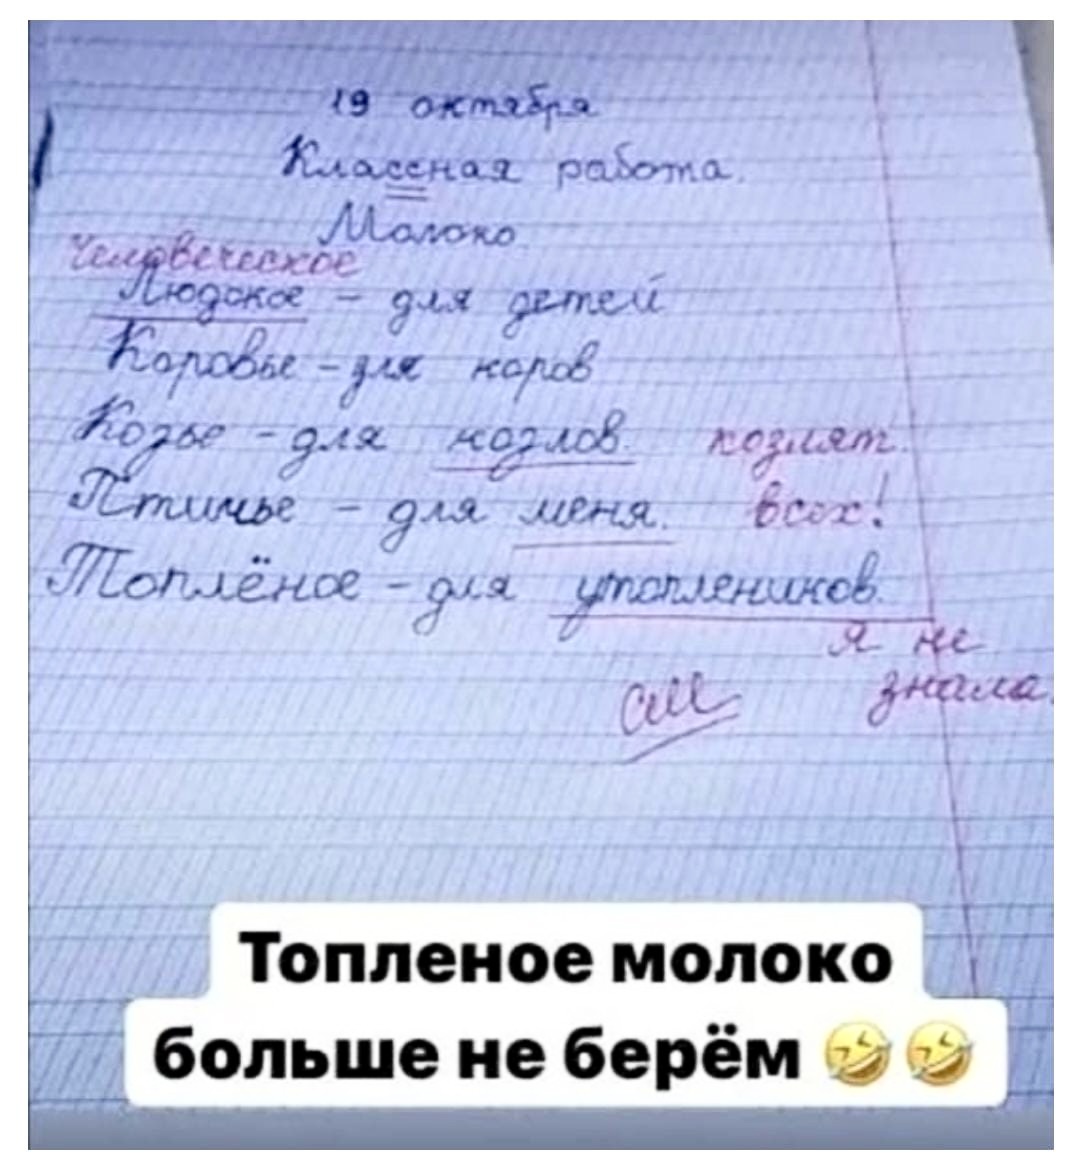 19 октября
Классная работа.
Молоко
Человеческое
Людское – для детей
Коровье – для коров
Козье – для козлов. козлят.
Птичье – для меня. всех!
Топлёное – для утоплеников.
я не
см знала.
Топленое молоко
больше не берём 🤣🤣